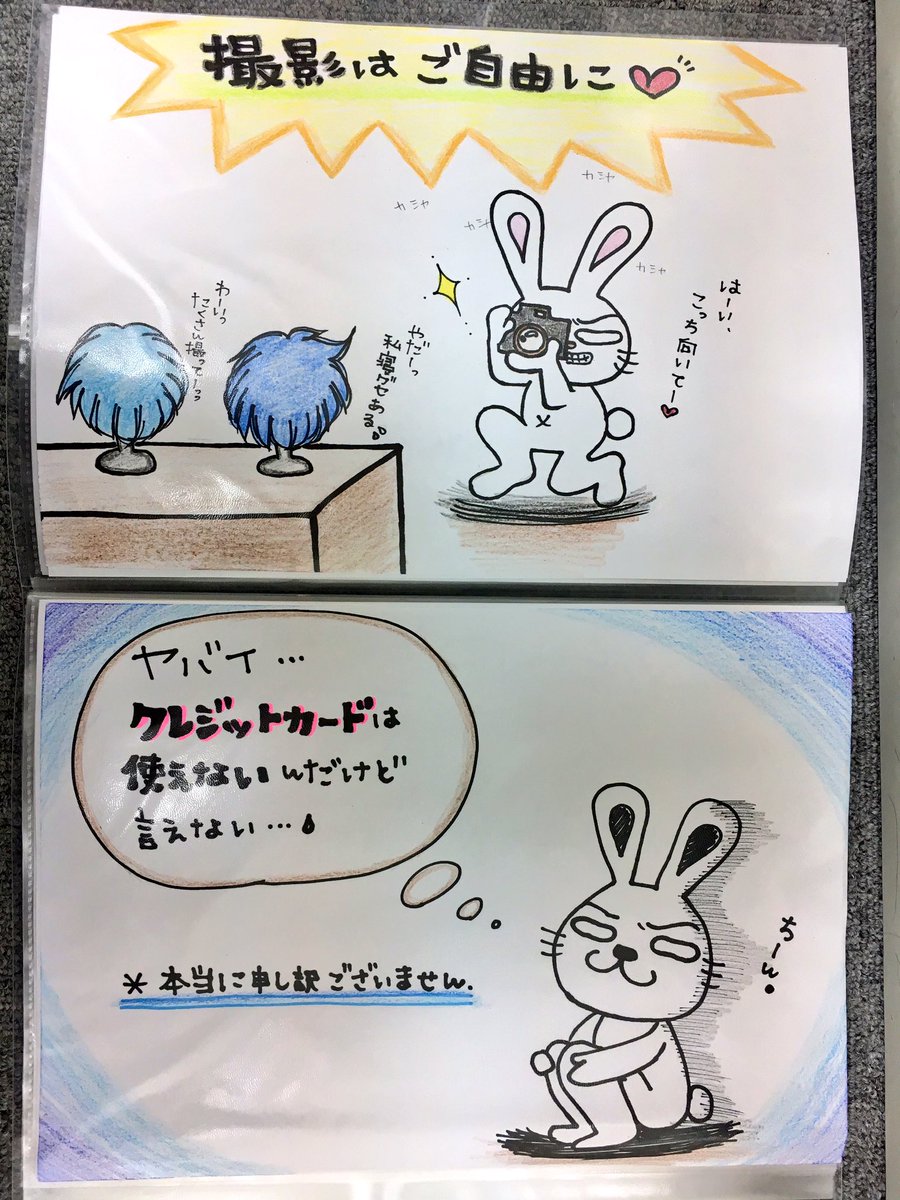 撮影はご自由に♥
カシャ
カシャ
カシャ
カシャ
はーい、
こっち向いてー♥
やだーっ
私寝グセある
わーいっ
たくさん撮ってーっっ
ヤバイ…
クレジットカードは
使えないんだけど
言えない…
ちーん。
*本当に申し訳ございません。